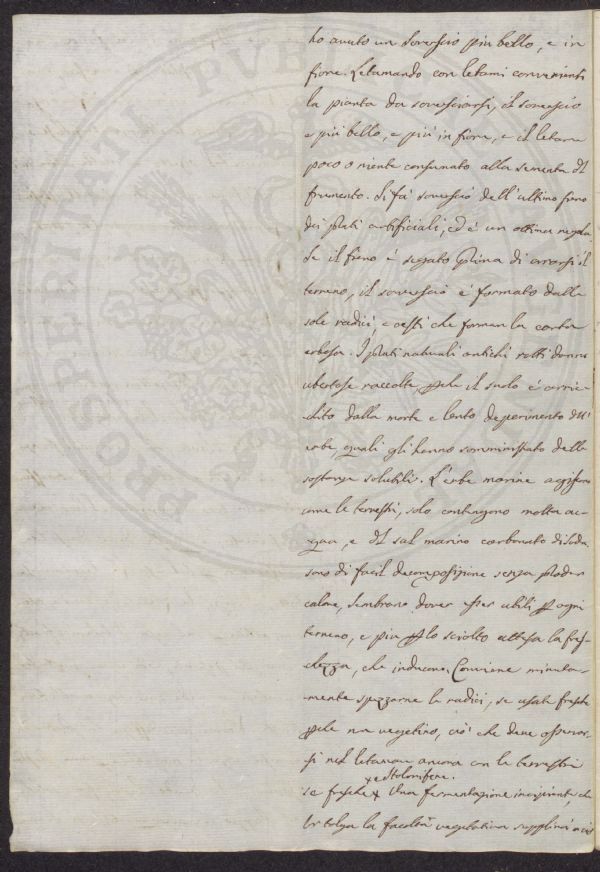 ho avuto un sovescio più bello, e in
fiore. Letamando con letami convenienti
la pianta da sovesciarsi, il sovescio
è più bello, e più in fiore, e il letame
poco o niente consumato alla sementa del
frumento. Si fà sovescio dell'ultimo fieno
dei prati artificiali, ed è un ottima regola.
Se il fieno è segato prima di ararsi il
terreno, il sovescio è formato dalle
sole radici, e cesti che forman la cotica
erbosa. I prati naturali antichi rotti danno
ubertose raccolte, perche il suolo è arric-
chito dalla morte e lento deperimento dell'
erbe, quali gli hanno somministrato delle
sostanze solubili. L'erbe marine agiscono
come le terrestri, solo contengono molta ac-
qua, e del sal marino carbonato di soda
sono di facil decomposizione senza produr
calore, sembrano dover esser utili per ogni
terreno, e più per lo sciolto attesa la fres-
chezza, che inducono. Conviene minuta-
mente spezzarne le radici, se usate fresche
perche non vegetino, ciò che deve osservar-
si nel letamare ancora con le terrestri
e stolonifere.
se fresche x Una fermentazione incipiente, che
le tolga la facoltà vegetativa supplirà a ciò
PROSPERITATI PUBLICAE